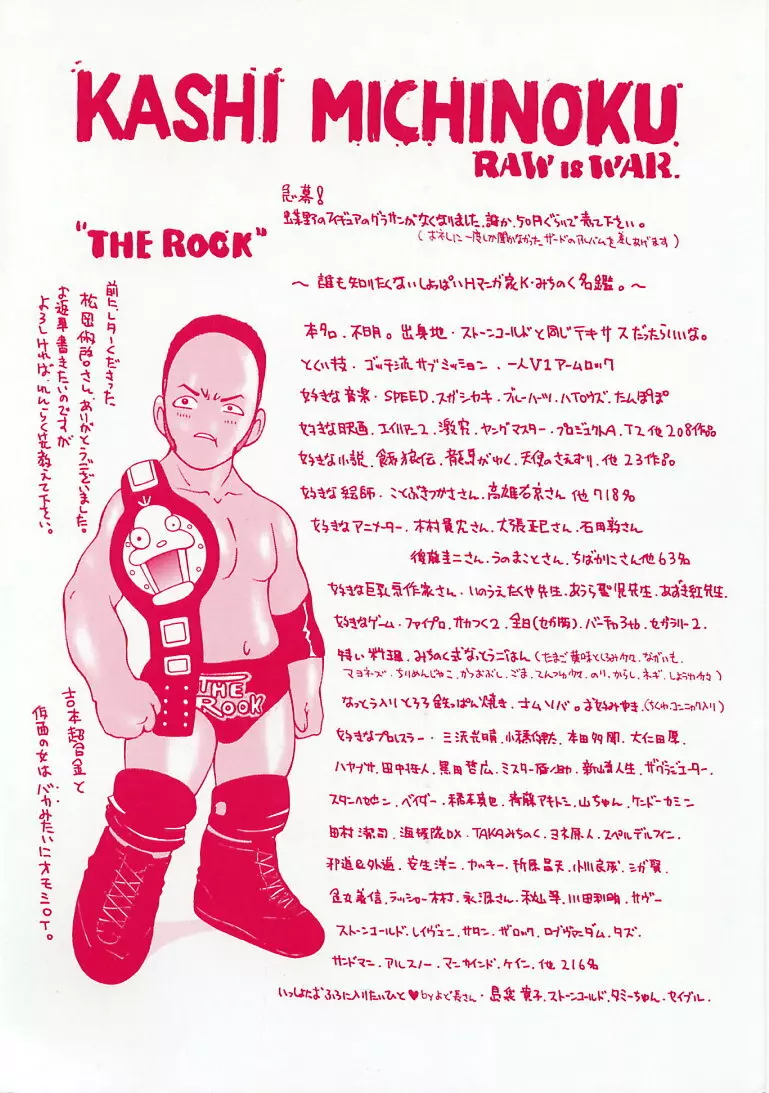 KASHI MICHINOKU
RAW IS WAR.
急募!
蛍野のフィギュアのグラサンがなくなりました。誰か、50円ぐらいで売て下さい。
(お礼に一度しか聞かなかったザードのアルバムを差しあげます)
"THE ROCK"
~ 誰も知りたくないしょっぱいHマンガ家K・みちのく名鑑。~
本名。不明。出身地・ストーンコールドと同じテキサスだったらいいな。
とくい技・ゴッチ流サブミッション、一人V1アームロック
好きな音楽・SPEED、スガシカオ、ブルーハーツ、ハイロウズ、たんぽぽ
好きな映画・エイリアン2、激突、ヤングマスター、プロジェクトA、T2他208作品
好きな小説・餓狼伝、龍馬がゆく、天使のさえずり、他23作品
好きな絵師・ことぶきつかささん、高雄右京さん 他718名
好きなアニメーター・木村貴宏さん、大張正己さん、石田敦さん
後藤圭二さん、うのまことさん、ちばかにこさん他63名
好きな巨乳系作家さん・いのうえたくや先生、あうら聖児先生、あずき紅先生、
好きなゲーム・ファイプロ、サカつく2、全日(セガ版)、バーチャろん、セガラリー2.
特い料理・みちのく式なっとうごはん(たまご黄味とくるみ少々、ながいも、
マヨネーズ、ちりめんじゃこ、かつおぶし、ごま、てんつゆ少々、のり、からし、ネギ、しょうゆ少々)
なっとう入りとろろ鉄っぱん焼き、オムソバ。お好みやき(ちくわ、コンニャク入り)
好きなプロレスラー・三沢光晴、小橋健太、本田多聞、大仁田厚、
ハヤブサ、田中将人、黒田哲広、ミスター雁之助、新山勝人生、ザグラジエーター、
スタンハンセン、ベイダー、橋本真也、斉藤アキトシ、山ちゃん、ケンドーカシン
田村潔司、海援隊DX、TAKAみちのく、ヨネ原人、スペルデルフィン、
邪道&外道、安生洋二、ヤッキー、折原昌夫、小川良成、シガ賢
金丸義信、ラッシャー木村、永源さん、秋山準、川田利明、サヴー
ストーンコールド、レイヴェン、サタン、ザロック、ロブヴァンダム、タズ、
サンドマン、アルスノー、マンカインド、ケイン、他216名
いっしょにおふろに入りたいひと♥byよど長さん・島袋寛子、ストーンコールド、タミーちゃん、セイブル、
前にレターくださった
松岡
さん、ありがとうございました。
お返事書きたいのですが
よろしければ、れんらく先教えて下さい。
吉本超合金と
仮面の女はバカみたいにオモシロイ。
THE
ROCK